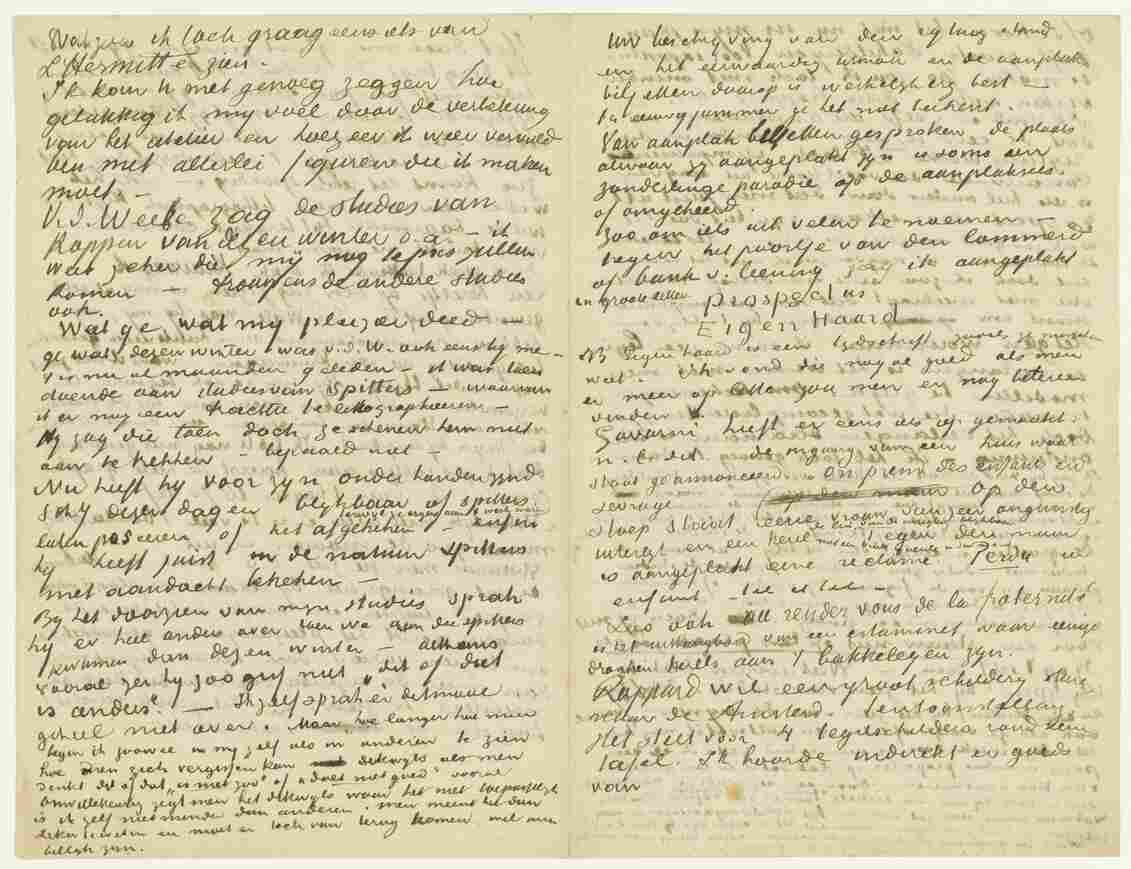 Wat zou ik toch graag eens iets van
L'Hermitte zien.
Ik kan U niet genoeg zeggen hoe
gelukkig ik my voel door de verbetering
van het atelier en hoezeer ik weer vervuld
ben met allerlei figuren die ik maken
moet. —
V.d. Weele zag de studies van
koppen van dezen winter o.a. — ik
wat zeker die my nog te pas zullen
komen — trouwens de andere studies
ook.
Wat ge, wat my plezier deed —
ge weet dezen winter was v.d. W. ook eens by me —
't is nu al maanden geleden — ik was toen
doende aan studies van spitters — waarvan
ik er nog een trachtte te lithographieeren —
Hy zag die toen doch ze schenen hem niet
aan te trekken — bepaald niet —
Nu heeft hy voor zyn onder handen zynde
schy dezer dagen blykbaar of spitters
laten poseeren of het afgekeken — enfin
hy heeft juist in de natuur spitters
met aandacht bekeken —
By het doorzien van myn studies sprak
hy er heel anders over toen we aan die spitters
kwamen dan dezen winter — althans
vooral zei hy zoo gif niet „dit of dat
is anders" — Ikzelf sprak er ditmaal
geheel niet over. Maar hoe langer hoe meer
begin ik zoowel in my zelf als in anderen te zien
hoe men zich vergissen kan dikwyls als men
denkt dit of dat „is niet zoo" of „doet niet goed" vooral
onwillekeurig zegt men het dikwyls waar het niet toepasselyk
is ik zelf niet minder dan anderen. men meent het dan
zeker te weten en moet er toch van terug komen wil men
billyk zyn.
Uw beschryving van dien
en het eenvaardig urinoir en de aanplak
biljetten daarop is werkelyk erg best —
't is eeuwig jammer ge het niet teekent.
Van aanplak biljetten gesproken de plaats
alwaar zy aangeplakt zyn is soms een
zonderlinge parodie op de aanplaksels.
of omgekeerd.
Zoo om iets uit velen te noemen —
tegen het poortje van den Lommerd
of bank v. leening zag ik aangeplakt
en groote letters prospectus
Eigen Haard
NB Eigen haard is een tydschrift zooals ge misschien
weet. Ik vond die nog al goed als men
er meer op lette zou men er nog betere
vinden.
Gavarni heeft er eens iets op gemaakt.
n. l. dit. De ingang van een huis waar
staat geannonceerd on prend des enfant en
sevrage. op den
stoep staat eene vrouw van zeer ongunstig
uiterlyk en een kerel tegen den muur
is aangeplakt eene reclame. Perdu un
enfant — tel et tel —
Zoo ook au rendez vous de la fraternité
is het van een estaminet, waar eenige
dronken kerels aan 't bakkeleyen zyn.
Rappard wil een groot schildery sturen
naar de Amsterd. tentoonstelling
Het stelt voor 4 tegelschilders rond een
tafel. Ik hoorde indirekt er goeds
van